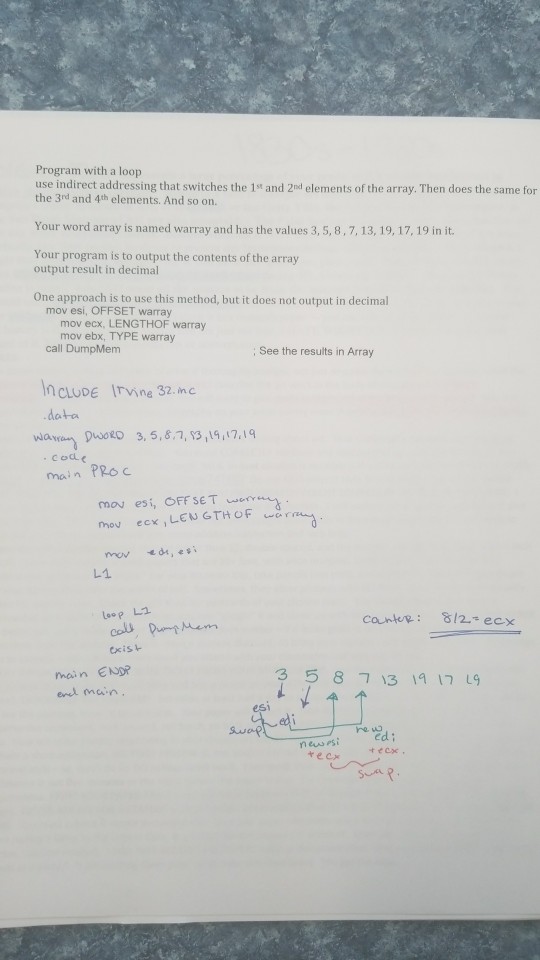 Program with a loop
use indirect addressing that switches the 1st and 2nd elements of the array. Then does the same for
the 3rd and 4th elements. And so on.
Your word array is named warray and has the values 3, 5, 8, 7, 13, 19, 17, 19 in it.
Your program is to output the contents of the array
output result in decimal
One approach is to use this method, but it does not output in decimal
mov esi, OFFSET warray
mov ecx, LENGTHOF warray
mov ebx, TYPE warray
call DumpMem ; See the results in Array
INCLUDE Irvine 32.inc
.data
warray DWORD 3, 5, 8, 7, 13, 19, 17, 19
.code
main PROC
mov esi, OFFSET warray.
mov ecx, LENGTHOF warray.
mov edi, esi
L1
loop L1
call DumpMem
exist
main ENDP
end main.
counter: 8/2 = ecx
3 5 8 7 13 19 17 19
esi
edi
swap
new esi
new edi
+ecx
+ecx.
swap.